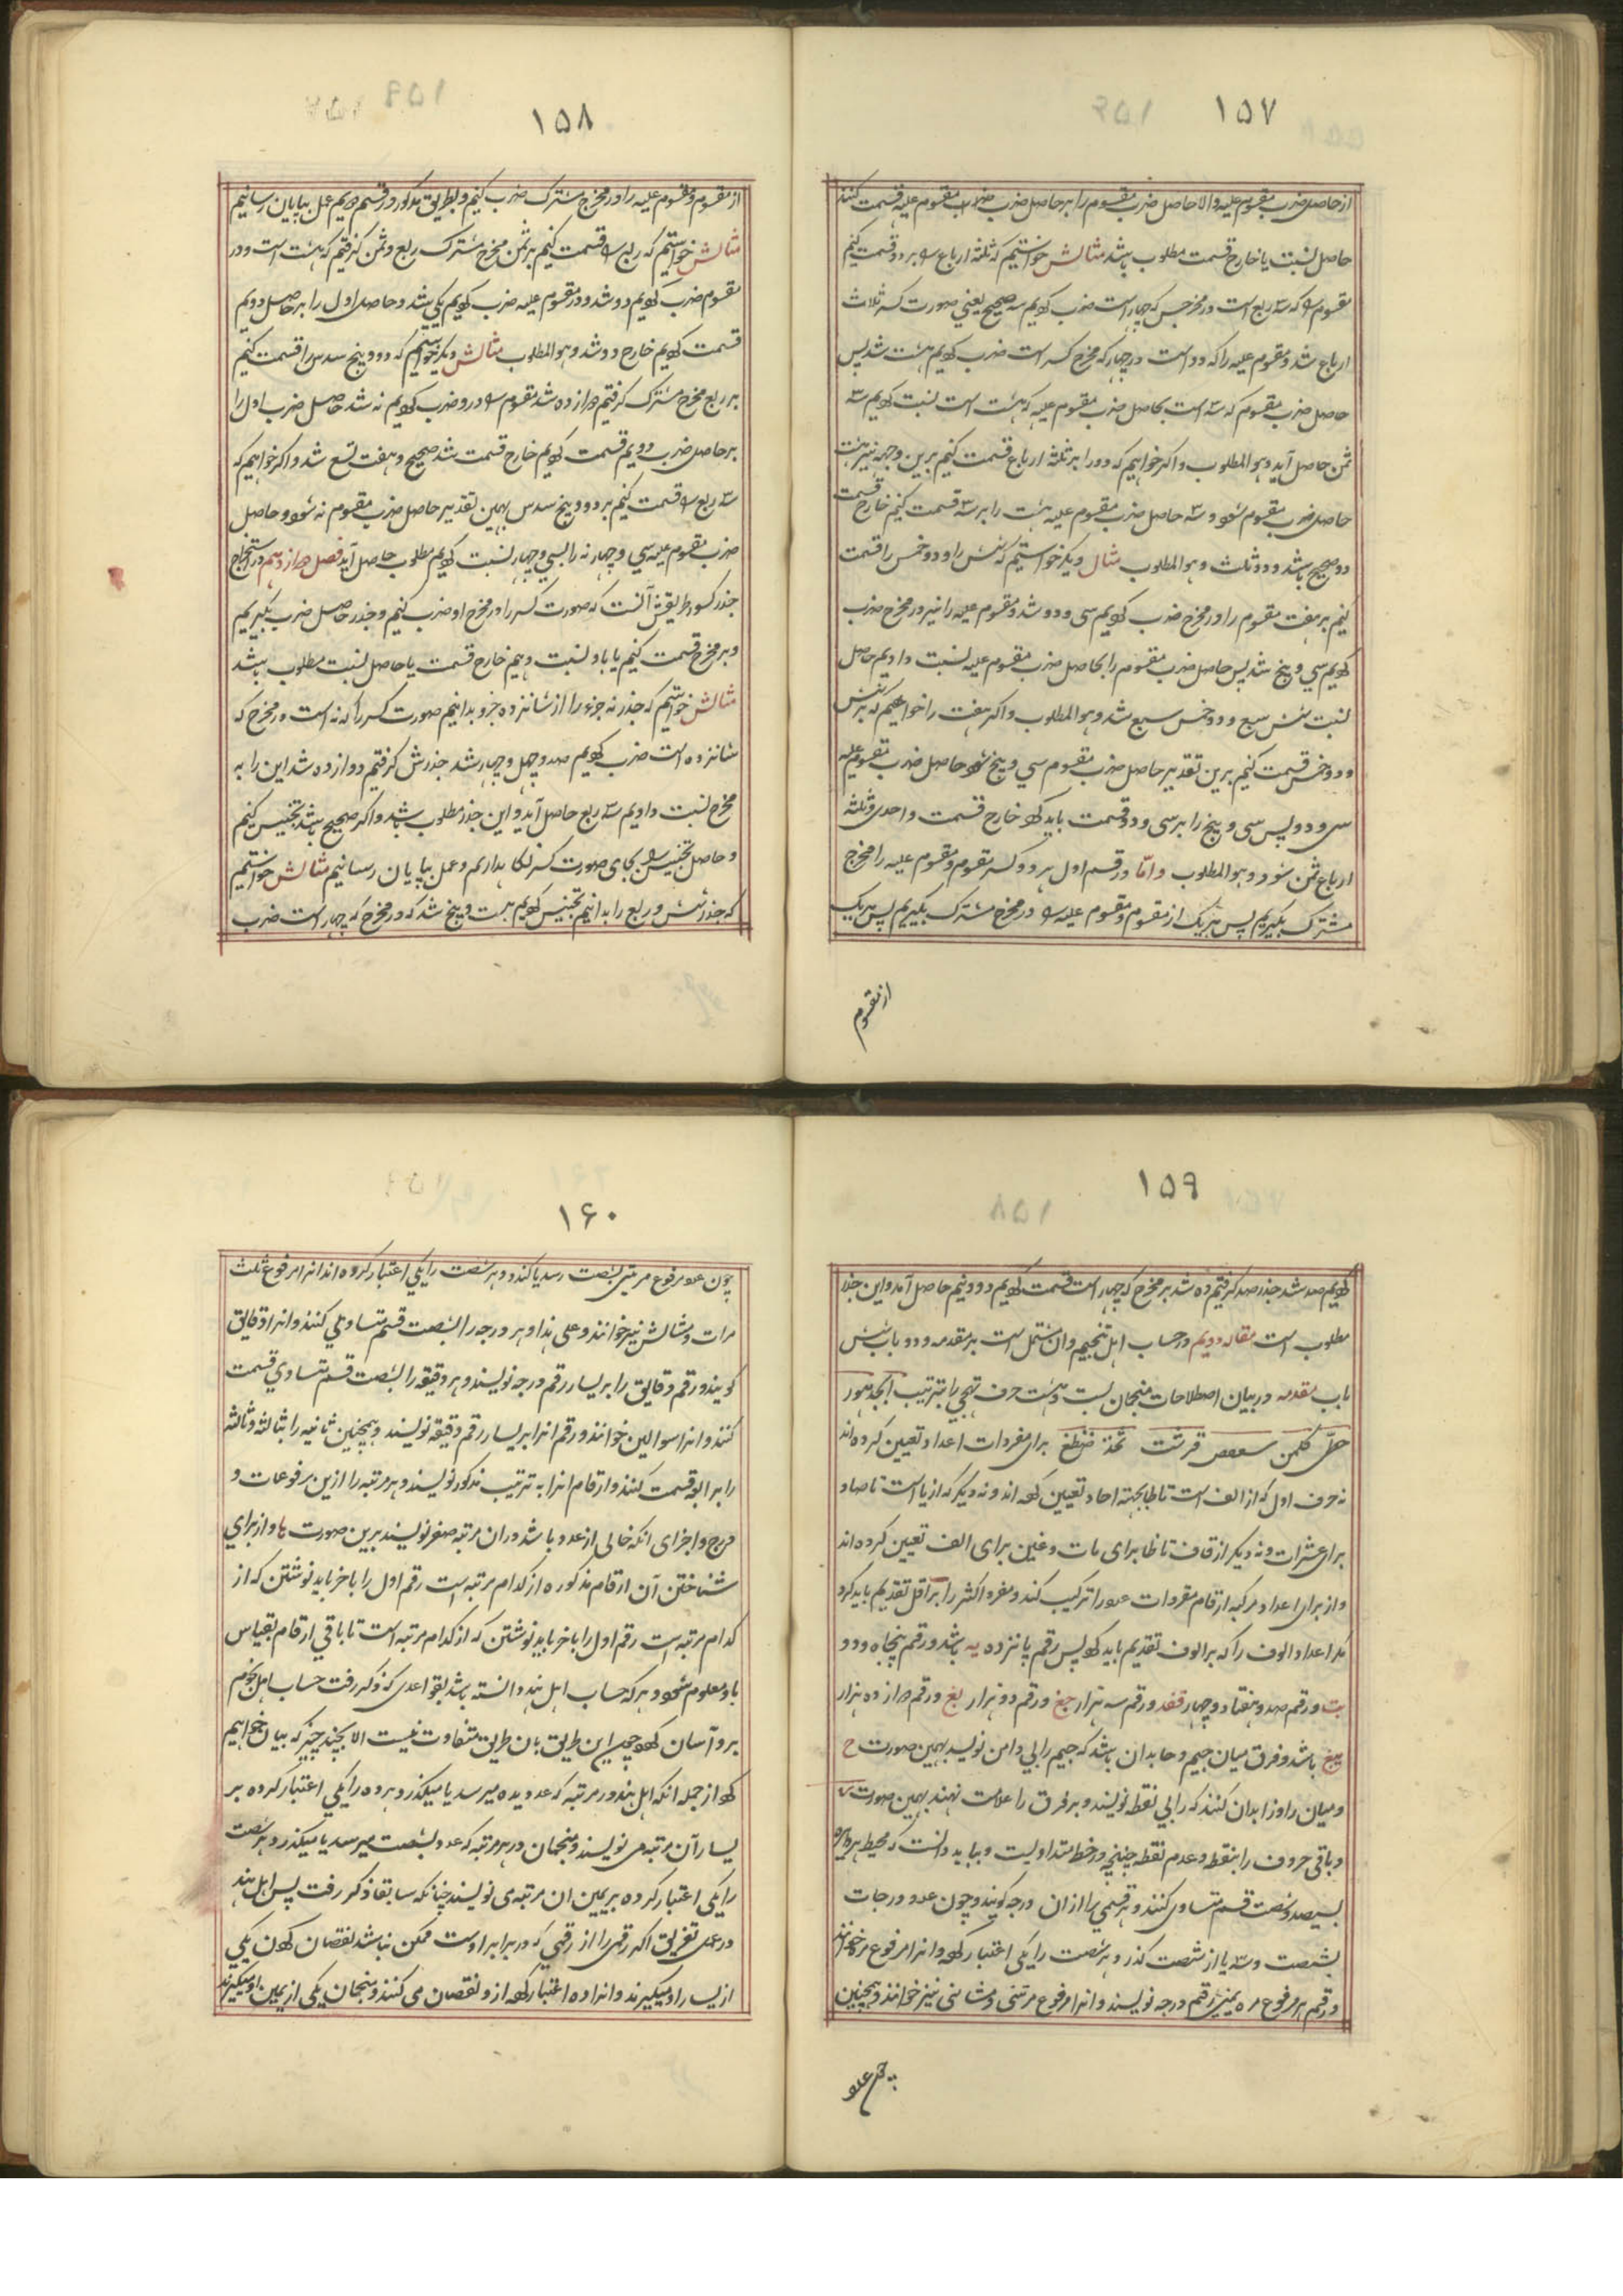 ۱۵۷
از حاصل ضرب مقسوم علیه والا حاصل ضرب مقسوم را بر حاصل ضرب مقسوم علیه قسمت کنند
حاصل نسبت یا خارج قسمت مطلوب باشد مثالش خواستیم که ثلثه ارباع را بر دو قسمت کنیم
مقسوم را که سه ربع است در مخرجش که چهار است ضرب کردیم سه صحیح یعنی صورت کسر ثلاث
ارباع شد و مقسوم علیه را که دو است در چهار که مخرج کسر است ضرب کردیم هشت شد پس
حاصل ضرب مقسوم که سه است بحاصل ضرب مقسوم علیه که هشت است نسبت کردیم سه
ثمن حاصل آید و هو المطلوب و اکر خواهیم که دو را بر ثلثه ارباع قسمت کنیم برین وجه نیز هشت
حاصل ضرب مقسوم شود و سه حاصل ضرب مقسوم علیه هشت را بر سه قسمت کنیم خارج قسمت
دو صحیح باشد و دو ثلث و هو المطلوب مثال دیکر خواستیم که شش را و دو خمس را قسمت
کنیم بر هفت مقسوم را در مخرج ضرب کردیم سی و دو شد و مقسوم علیه را نیز در مخرج ضرب
کردیم سی و پنج شد پس حاصل ضرب مقسوم را بحاصل ضرب مقسوم علیه نسبت دادیم حاصل
نسبت شش سبع و دو خمس سبع شد و هو المطلوب و اکر هفت را خواهیم که بر شش
و دو خمس قسمت کنیم برین تقدیر حاصل ضرب مقسوم سی و پنج شود حاصل ضرب مقسوم علیه
سی و دو پس سی و پنج را بر سی و دو قسمت باید کرد خارج قسمت واحدی و ثلثه
ارباع ثمن شود و هو المطلوب و امّا در قسم اول هر دو کسر مقسوم و مقسوم علیه را مخرج
مشترک بکیریم پس هر یک از مقسوم و مقسوم علیه را در مخرج مشترک بکیریم پس هر یک
از مقسوم
۱۵۸
از مقسوم و مقسوم علیه را در مخرج مشترک ضرب کنیم و بطریق مذکور در قسم دویم عمل بپایان رسانیم
مثالش خواستیم که ربع را قسمت کنیم بر ثمن مخرج مشترک ربع و ثمن کرفتیم که هشت است و در
مقسوم ضرب کردیم دو شد و در مقسوم علیه ضرب کردیم یکی شد و حاصل اول را بر حاصل دویم
قسمت کردیم خارج دو شد و هو المطلوب مثالش دیکر خواستیم که دو و پنج سدس را قسمت کنیم
بر ربع مخرج مشترک کرفتیم دوازده شد مقسوم را در و ضرب کردیم نه شد حاصل ضرب اول را
بر حاصل ضرب دویم قسمت کردیم خارج قسمت شد صحیح و هفت تسع شد و اکر خواهیم که
سه ربع را قسمت کنیم بر دو و پنج سدس بهمین تقدیر حاصل ضرب مقسوم نه شود و حاصل
ضرب مقسوم علیه سی و چهار نه را بسی و چهار نسبت کردیم مطلوب حاصل آید فصل دوازدهم در استخراج
جذر کسور طریقش آنست که صورت کسر را در مخرج او ضرب کنیم و جذر حاصل ضرب بکیریم
و بر مخرج قسمت کنیم یا باو نسبت دهیم خارج قسمت یا حاصل نسبت مطلوب باشد
مثالش خواستیم که جذر نه جزو را از شانزده جزو بدانیم صورت کسر را که نه است در مخرج که
شانزده است ضرب کردیم صد و چهل و چهار شد جذرش کرفتیم دوازده شد این را به
مخرج نسبت دادیم سه ربع حاصل آید و این جذر مطلوب باشد و اکر صحیح باشد تجنیس کنیم
و حاصل تجنیس را بجای صورت کسر نکا بداریم و عمل بپایان رسانیم مثالش خواستیم
که جذر شش و ربع را بدانیم تجنیس کردیم بیست و پنج شد که در مخرج که چهار است ضرب
۱۵۹
کردیم صد شد جذر صد کرفتیم ده شد بر مخرج که چهار است قسمت کردیم دو و نیم حاصل آمد و این جذر
مطلوب است مقاله دویم در حساب اهل تنجیم و ان مشتمل است بر مقدمه و دو باب شش
باب مقدمه در بیان اصطلاحات منجمان بیست و هشت حرف تهجی را بترتیب ابجد هوز
حطی کلمن سعفص قرشت ثخذ ضظغ برای مفردات اعداد تعیین کرده اند
نه حرف اول که از الف است تا طا بجهة احاد تعیین کرده اند و نه دیکر که از یا است تا صاد
برای عشرات و نه دیکر از قاف تا ظا برای مات و غین برای الف تعیین کرده اند
و از برای اعداد مرکبه ارقام مفردات عدد را ترکیب کند و مفرد اکثر را بر اقل تقدیم باید کرد
مکر اعداد الوف را که بر الوف تقدیم باید کرد پس رقم پانزده یه باشد و رقم پنجاه و دو
نب و رقم صد و هفتاد و چهار قعد و رقم سه هزار جغ و رقم دو هزار بغ و رقم دوازده هزار
یبغ باشد و فرق میان جیم و حا بدان باشد که جیم را بی دامن نویسد بهمین صورت ح
و میان را و زا بدان کنند که را بی نقطه نویسند و بر فرق را علامت نهند بهمین صورت
و باقی حروف را بنقط و عدم نقطه چنانچه در خط متداولیت و بباید دانست که محیط هر دایره
بسیصد و شصت قسم متساوی کنند و هر قسمی را از ان درجه کویند و چون عدد درجات
بشصت رسد یا از شصت کذرد و هر شصت را یکی اعتبار کرده و انرا مرفوع مره خوانند
و رقم مرفوع مره بیمین رقم درجه نویسند و انرا مرفوع مرتین و مثانی نیز خوانند و همچنین
چون عدد
۱۶۰
چون عدد مرفوع مرتین بشصت رسد یا کذرد و هر شصت را یکی اعتبار کرده اند انرا مرفوع ثلث
مرات و مثالث نیز خوانند و علی هذا و هر درجه را بشصت قسم متساوی کنند و انرا دقایق
کویند و رقم دقایق را بر یسار رقم درجه نویسند و هر دقیقه را بشصت قسم متساوی قسمت
کنند و انرا سوالین خوانند و رقم انرا بر یسار رقم دقیقه نویسند و همچنین ثانیه را بثالثه و ثالثه
را برابعه قسمت کنند و ارقام انرا به ترتیب مذکور نویسند و هر مرتبه را ازین مرفوعات و
درج و اجزای انکه خالی از عدد باشد در ان مرتبه صفر نویسند برین صورت ها و از برای
شناختن آن ارقام مذکوره از کدام مرتبه است رقم اول را باخر باید نوشتن که از
کدام مرتبه است رقم اول را باخر باید نوشتن که از کدام مرتبه است تا باقی ارقام بقیاس
باو معلوم شود و هر که حساب اهل هند دانسته باشد بقواعدی که ذکر رفت حساب اهل نجوم
برو آسان کردد چه این طریق بان طریق متفاوت نیست الا بچند چیز که بیان خواهیم
کرد از جمله انکه اهل هند در مرتبه که عدد بده میرسد یا میکذرد و هر ده را یکی اعتبار کرده بر
یسار آن مرتبه می نویسند و منجمان در هر مرتبه که عدد بشصت میرسد یا میکذرد و هر شصت
را یکی اعتبار کرده بریمین ان مرتبه می نویسند چنانکه سابقا ذکر رفت پس اهل هند
در عمل تفریق اکر رقمی را از رقمی که در برابر اوست ممکن نباشد نقصان کردن یکی
از یسار او میکیرند و انرا ده اعتبار کرده ازو نقصان می کنند و منجمان یکی از یمین او میکیرند